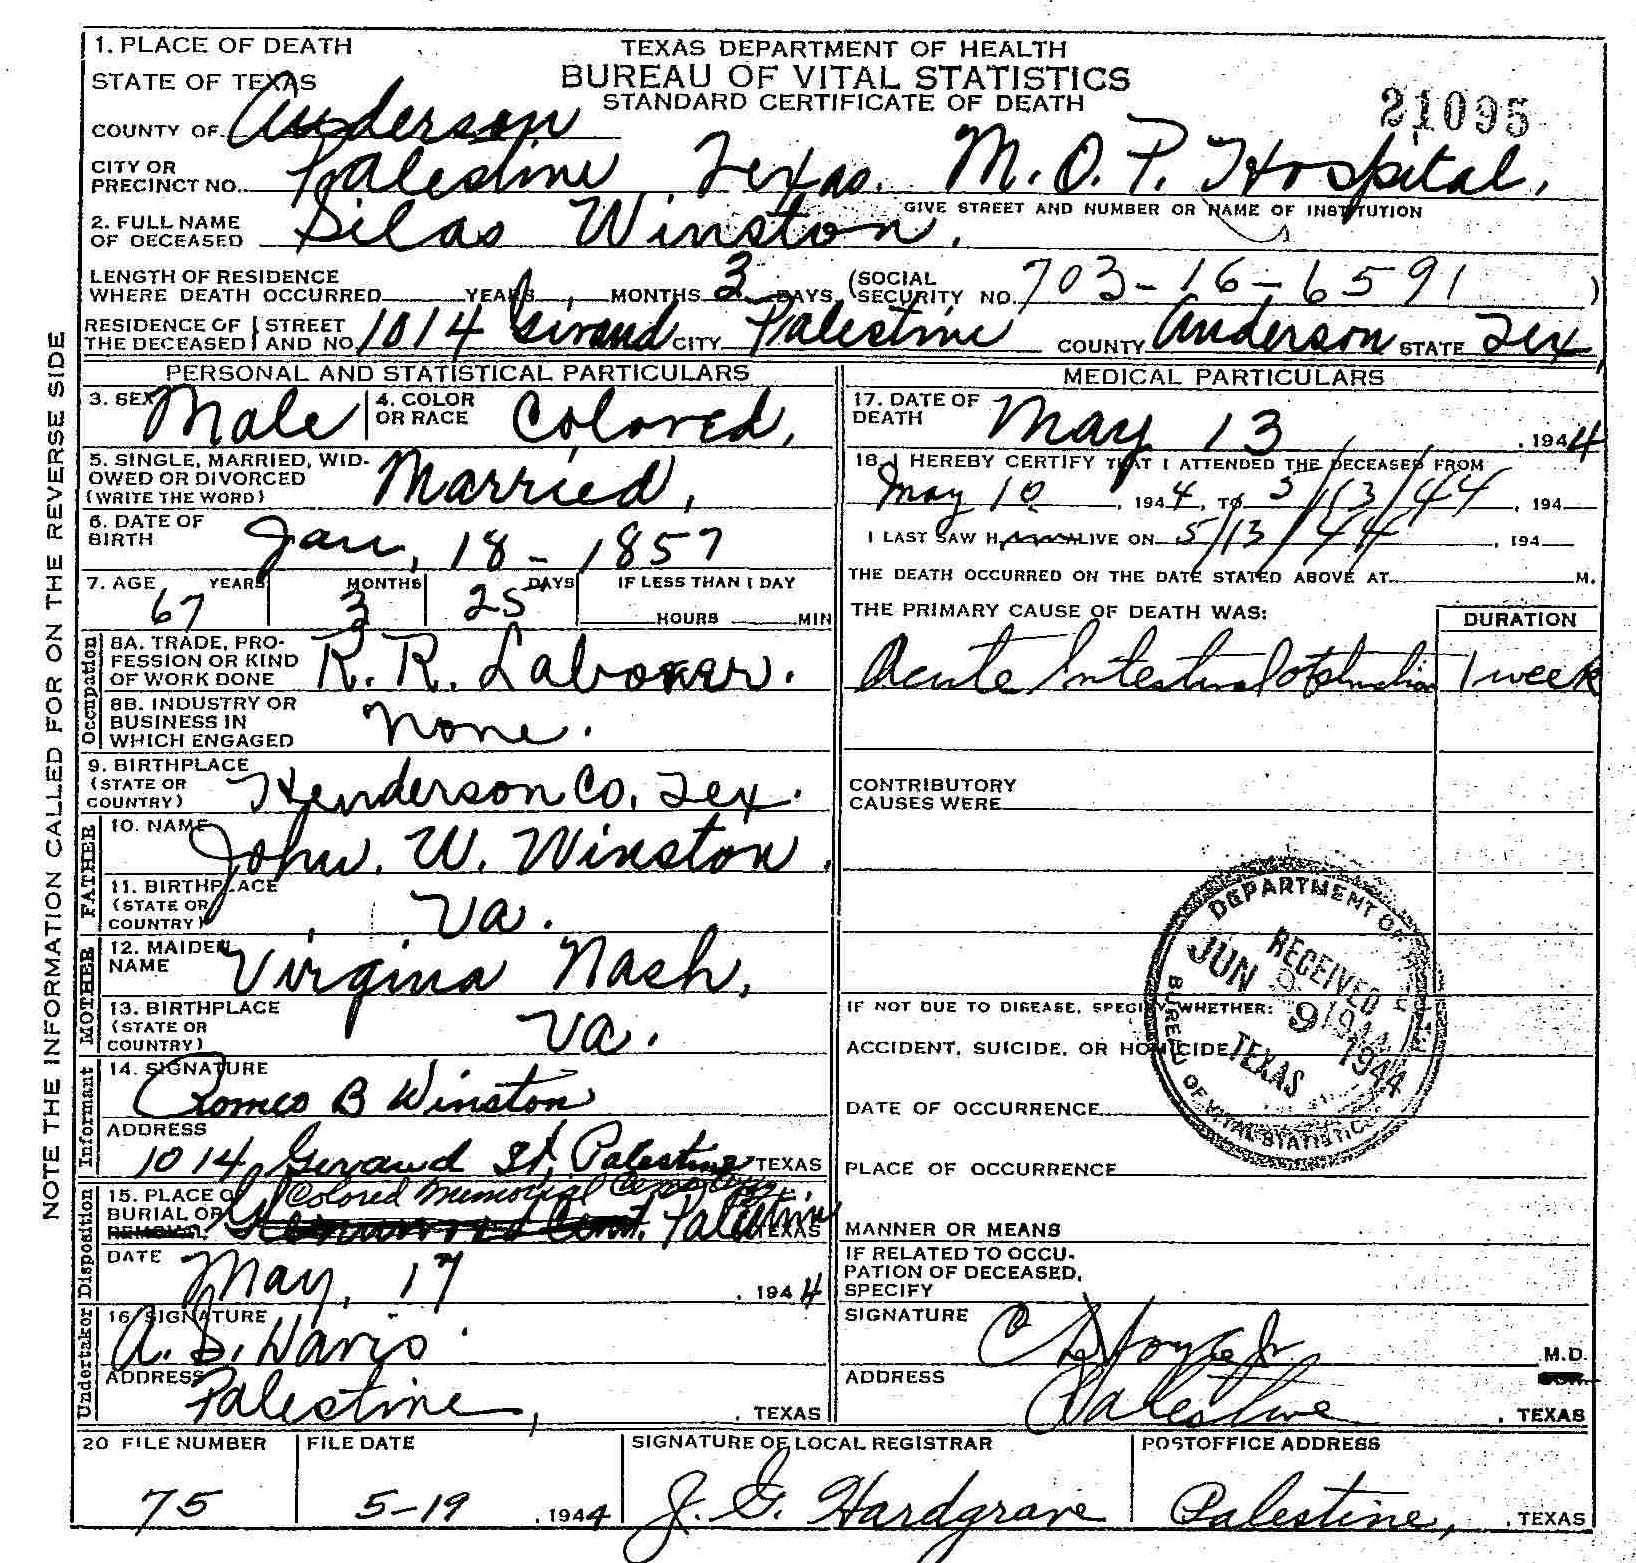 1. PLACE OF DEATH
TEXAS DEPARTMENT OF HEALTH
STATE OF TEXAS
BUREAU OF VITAL STATISTICS
STANDARD CERTIFICATE OF DEATH
21095
COUNTY OF Anderson
CITY OR PRECINCT NO. Palestine, Texas. M.O.P. Hospital.
GIVE STREET AND NUMBER OR NAME OF INSTITUTION
2. FULL NAME OF DECEASED Silas Winston.
LENGTH OF RESIDENCE WHERE DEATH OCCURRED YEARS, MONTHS 3 DAYS (SOCIAL SECURITY NO. 703-16-6591)
RESIDENCE OF THE DECEASED STREET AND NO. 1014 Giraud CITY Palestine COUNTY Anderson STATE Tex,
PERSONAL AND STATISTICAL PARTICULARS
3. SEX Male 4. COLOR OR RACE Colored,
5. SINGLE, MARRIED, WIDOWED OR DIVORCED (WRITE THE WORD) Married,
6. DATE OF BIRTH Jan, 18-1857
7. AGE YEARS 67 MONTHS 3 DAYS 25 IF LESS THAN 1 DAY
HOURS MIN
Occupation
8A. TRADE, PROFESSION OR KIND OF WORK DONE R.R. Laborer.
8B. INDUSTRY OR BUSINESS IN WHICH ENGAGED none.
9. BIRTHPLACE (STATE OR COUNTRY) Henderson Co, Tex.
FATHER
10. NAME John. W. Winston.
11. BIRTHPLACE (STATE OR COUNTRY) Va.
MOTHER
12. MAIDEN NAME Virgina Nash,
13. BIRTHPLACE (STATE OR COUNTRY) Va.
Informant
14. SIGNATURE Romeo B Winston
ADDRESS 1014 Geraud St, Palestine TEXAS
Disposition
15. PLACE OF BURIAL OR REMOVAL Colored Memorial Cemetery,
Palestine TEXAS
DATE May, 17, 1944
Undertaker
16. SIGNATURE A. D. Davis.
ADDRESS Palestine, , TEXAS
MEDICAL PARTICULARS
17. DATE OF DEATH May 13, 1944
18. I HEREBY CERTIFY THAT I ATTENDED THE DECEASED FROM
May 10, 1944, TO 5/13/44, 194
I LAST SAW H ALIVE ON 5/13/44, 194
THE DEATH OCCURRED ON THE DATE STATED ABOVE AT M.
THE PRIMARY CAUSE OF DEATH WAS: DURATION
Acute Intestinal Obstruction 1 week
CONTRIBUTORY CAUSES WERE
IF NOT DUE TO DISEASE, SPECIFY WHETHER:
ACCIDENT, SUICIDE, OR HOMICIDE
DATE OF OCCURRENCE
PLACE OF OCCURRENCE
MANNER OR MEANS
IF RELATED TO OCCUPATION OF DECEASED, SPECIFY
SIGNATURE M.D.
ADDRESS Palestine, TEXAS
DEPARTMENT OF HEALTH
RECEIVED
JUN 9 1944
TEXAS
BUREAU OF VITAL STATISTICS
20 FILE NUMBER 75
FILE DATE 5-19, 1944
SIGNATURE OF LOCAL REGISTRAR J. G. Hardgrave
POSTOFFICE ADDRESS Palestine, , TEXAS
NOTE THE INFORMATION CALLED FOR ON THE REVERSE SIDE